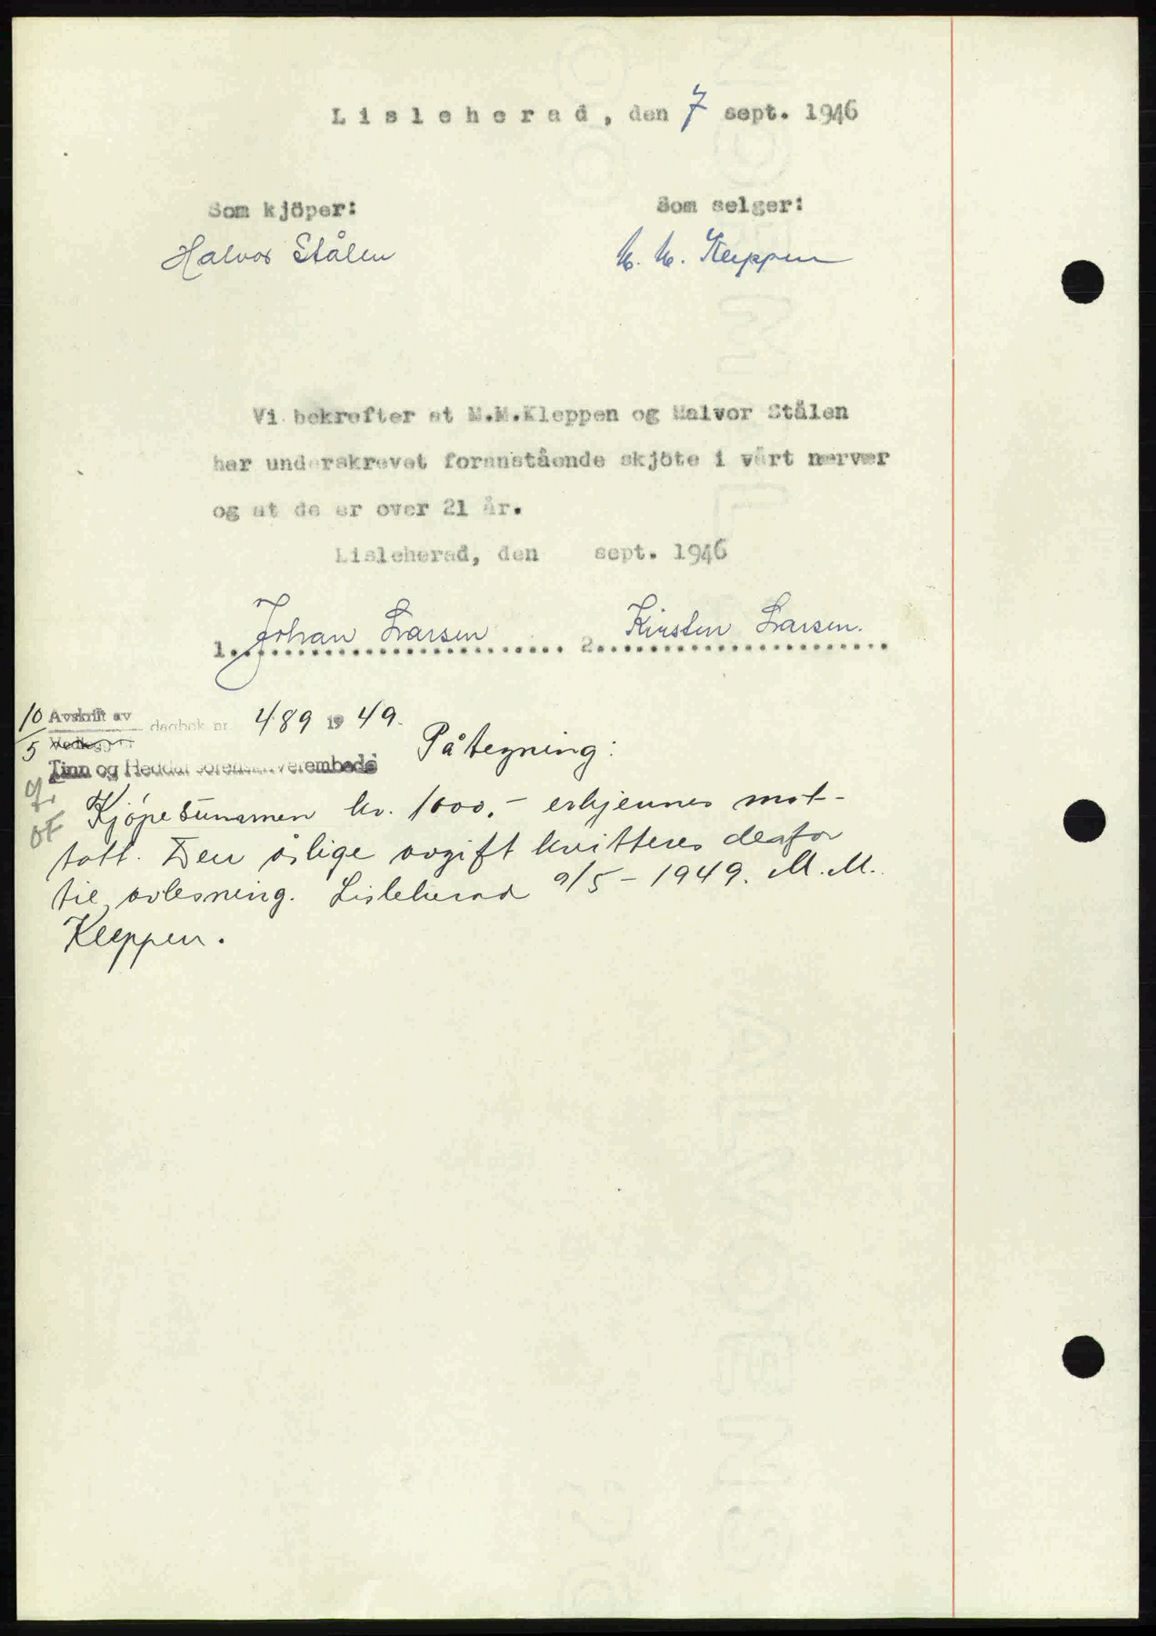 Lisleherad, den 7 sept. 1946
Som kjöper: Som selger:
Halvor Stålen M. M. Kleppen
Vi bekrefter at M.M.Kleppen og Halvor Stålen
har underskrevet foranstående skjöte i vårt nærvær
og at de er over 21 år.
Lisleherad, den sept. 1946
1. Johan Larsen 2. Kirsten Larsen.
10/5 Avskrift av dagbok nr. 489 1949.
Vedlegg til
Tinn og Heddal sorenskriverembede
Påtegning:
Kjöpesummen kr. 1000,- erkjennes mot-
tatt. Den årlige avgift kvitteres derfor
til avlesning. Lisleherad 9/5-1949. M.M.
Kleppen.